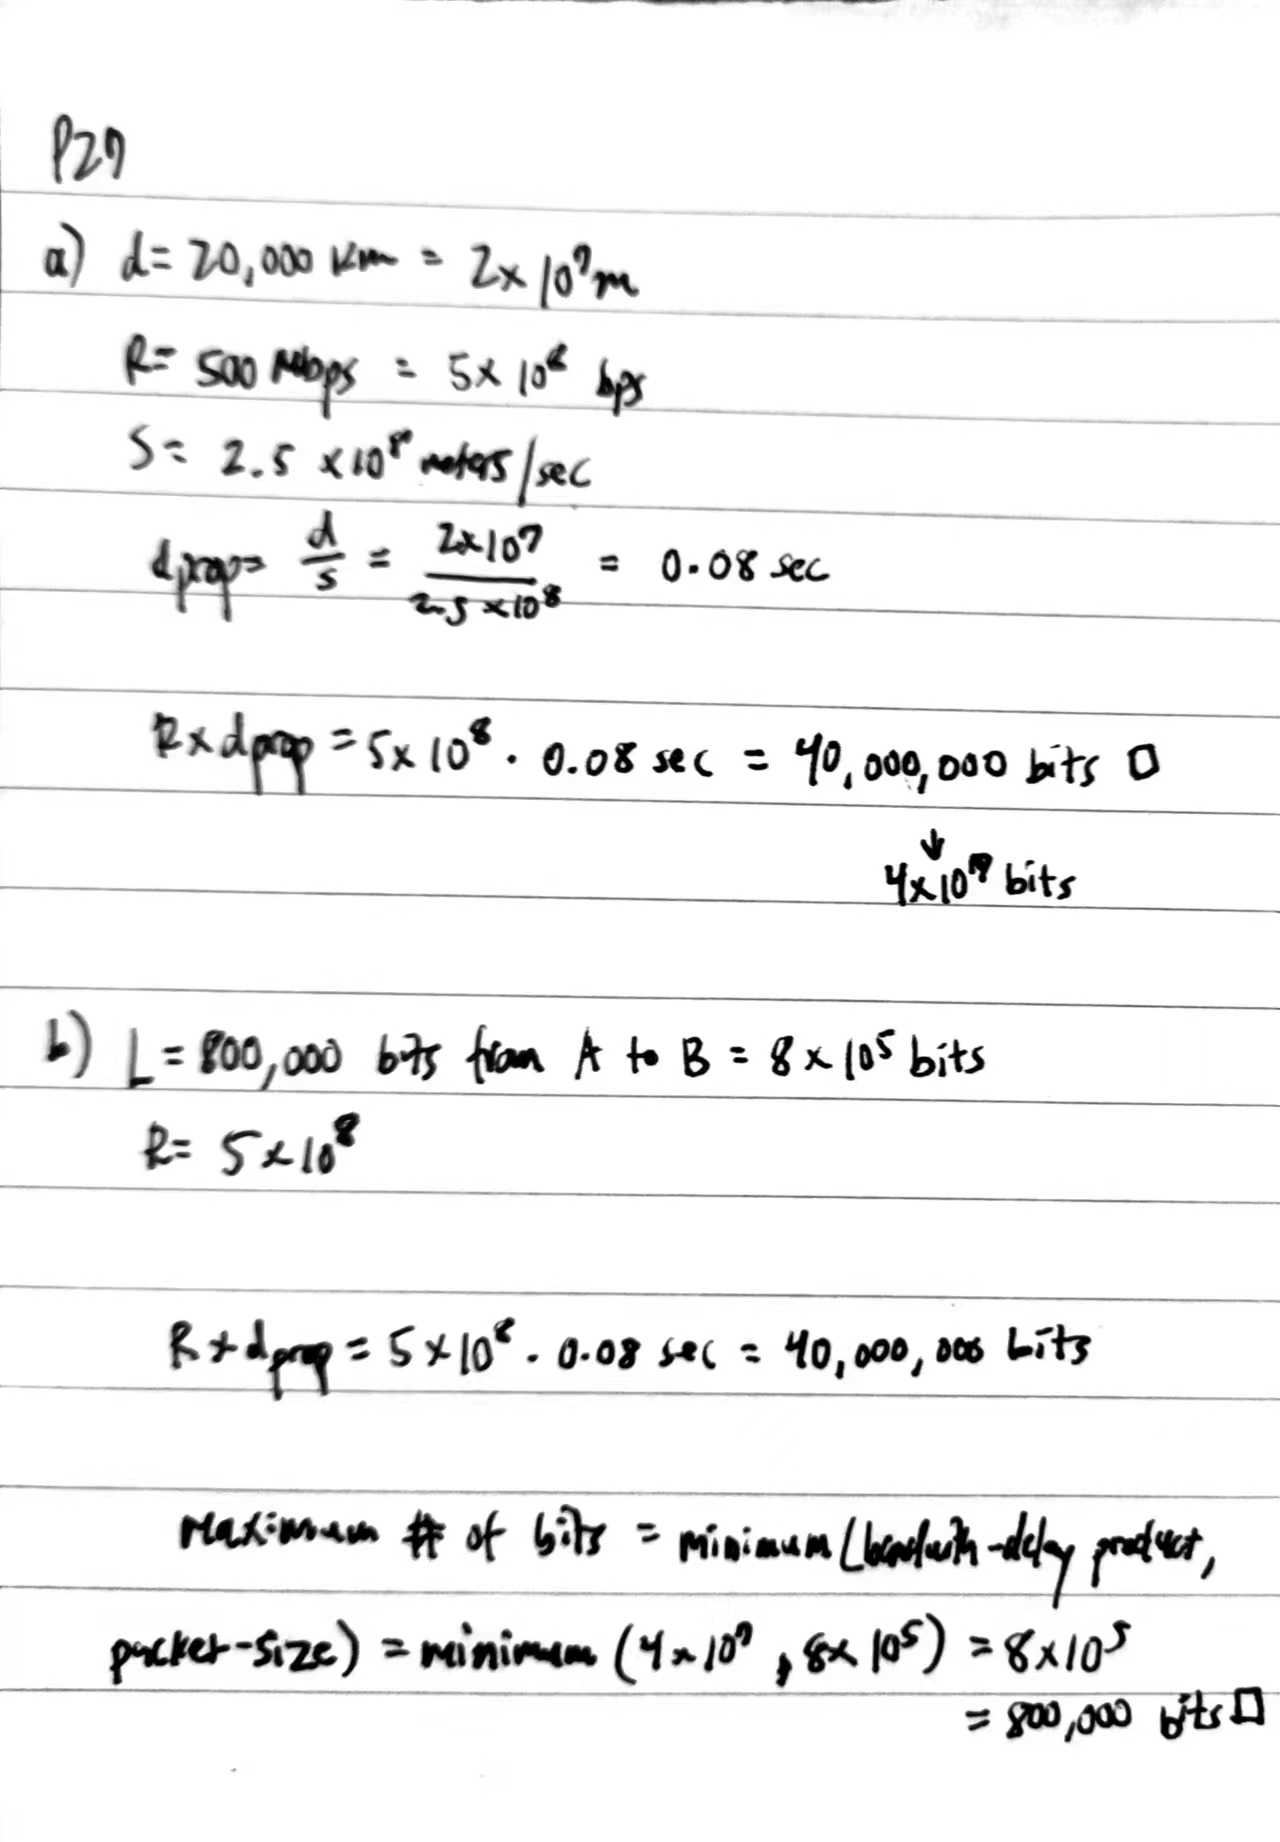 P27
a) d = 20,000 km = 2 x 10⁷ m
R = 500 Mbps = 5 x 10⁸ bps
S = 2.5 x 10⁸ meters/sec
dprop = d/s = 2x10⁷/2.5 x 10⁸ = 0.08 sec
R x dprop = 5 x 10⁸ · 0.08 sec = 40,000,000 bits □
↓
4x10⁷ bits
b) L = 800,000 bits from A to B = 8 x 10⁵ bits
R = 5 x 10⁸
R x dprop = 5 x 10⁸ · 0.08 sec = 40,000,000 bits
maximum # of bits = minimum (bandwith-delay product,
packet-size) = minimum (4 x 10⁷, 8x 10⁵) = 8 x 10⁵
= 800,000 bits □